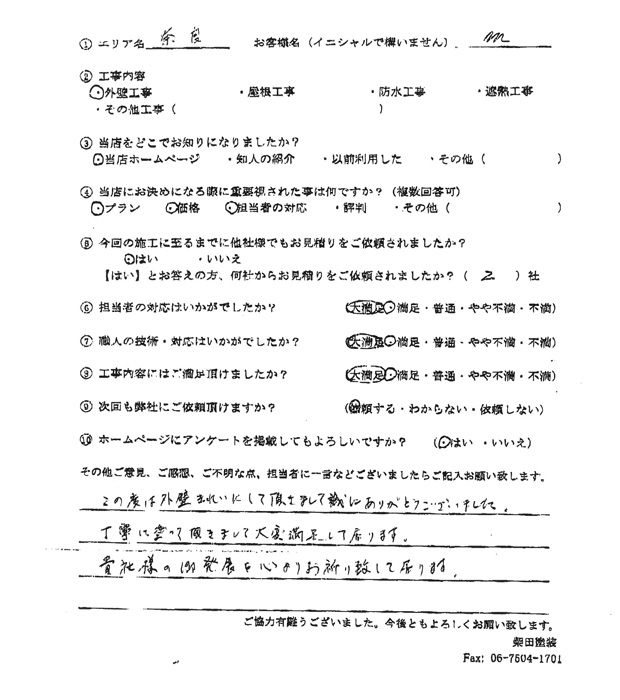 ① エリア名 奈良 お客様名(イニシャルで構いません) m
② 工事内容
・外壁工事 ・屋根工事 ・防水工事 ・遮熱工事
・その他工事( )
③ 当店をどこでお知りになりましたか?
・当店ホームページ ・知人の紹介 ・以前利用した ・その他( )
④ 当店にお決めになる際に重要視された事は何ですか?(複数回答可)
・プラン ・価格 ・担当者の対応 ・評判 ・その他( )
⑤ 今回の施工に至るまでに他社様でもお見積りをご依頼されましたか?
・はい ・いいえ
【はい】とお答えの方、何社からお見積りをご依頼されましたか?( 2 )社
⑥ 担当者の対応はいかがでしたか? (大満足・満足・普通・やや不満・不満)
⑦ 職人の技術・対応はいかがでしたか? (大満足・満足・普通・やや不満・不満)
⑧ 工事内容にはご満足頂けましたか? (大満足・満足・普通・やや不満・不満)
⑨ 次回も弊社にご依頼頂けますか? (依頼する・わからない・依頼しない)
⑩ ホームページにアンケートを掲載してもよろしいですか? (・はい ・いいえ)
その他ご意見、ご感想、ご不明な点、担当者に一言などございましたらご記入お願い致します。
この度は外壁きれいにして頂きまして誠にありがとうございました。
丁寧に塗って頂きまして大変満足して居ります。
貴社様の御発展を心よりお祈り致して居ります。
ご協力有難うございました。今後ともよろしくお願い致します。
柴田塗装
Fax: 06-7504-1701